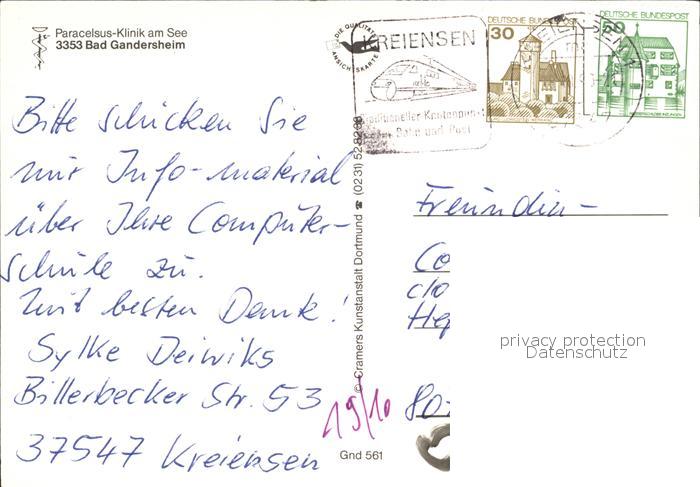 Paracelsus-Klinik am See
3353 Bad Gandersheim
DIE QUALITÄTS
ANSICHTSKARTE
KREIENSEN
Traditioneller Knotenpunkt
Bahn und Post
DEUTSCHE BUNDESPOST
30
DEUTSCHE BUNDESPOST
50
Bitte schicken Sie
mir Info-material
über Ihre Computer-
schule zu.
Mit besten Dank!
Sylke Deiwiks
Billerbecker Str. 53
37547 Kreiensen
© Cramers Kunstanstalt Dortmund ☎ (0231)
19/10
Gnd 561
Freundin-
Co
c/o
Hep
80
privacy protection
Datenschutz